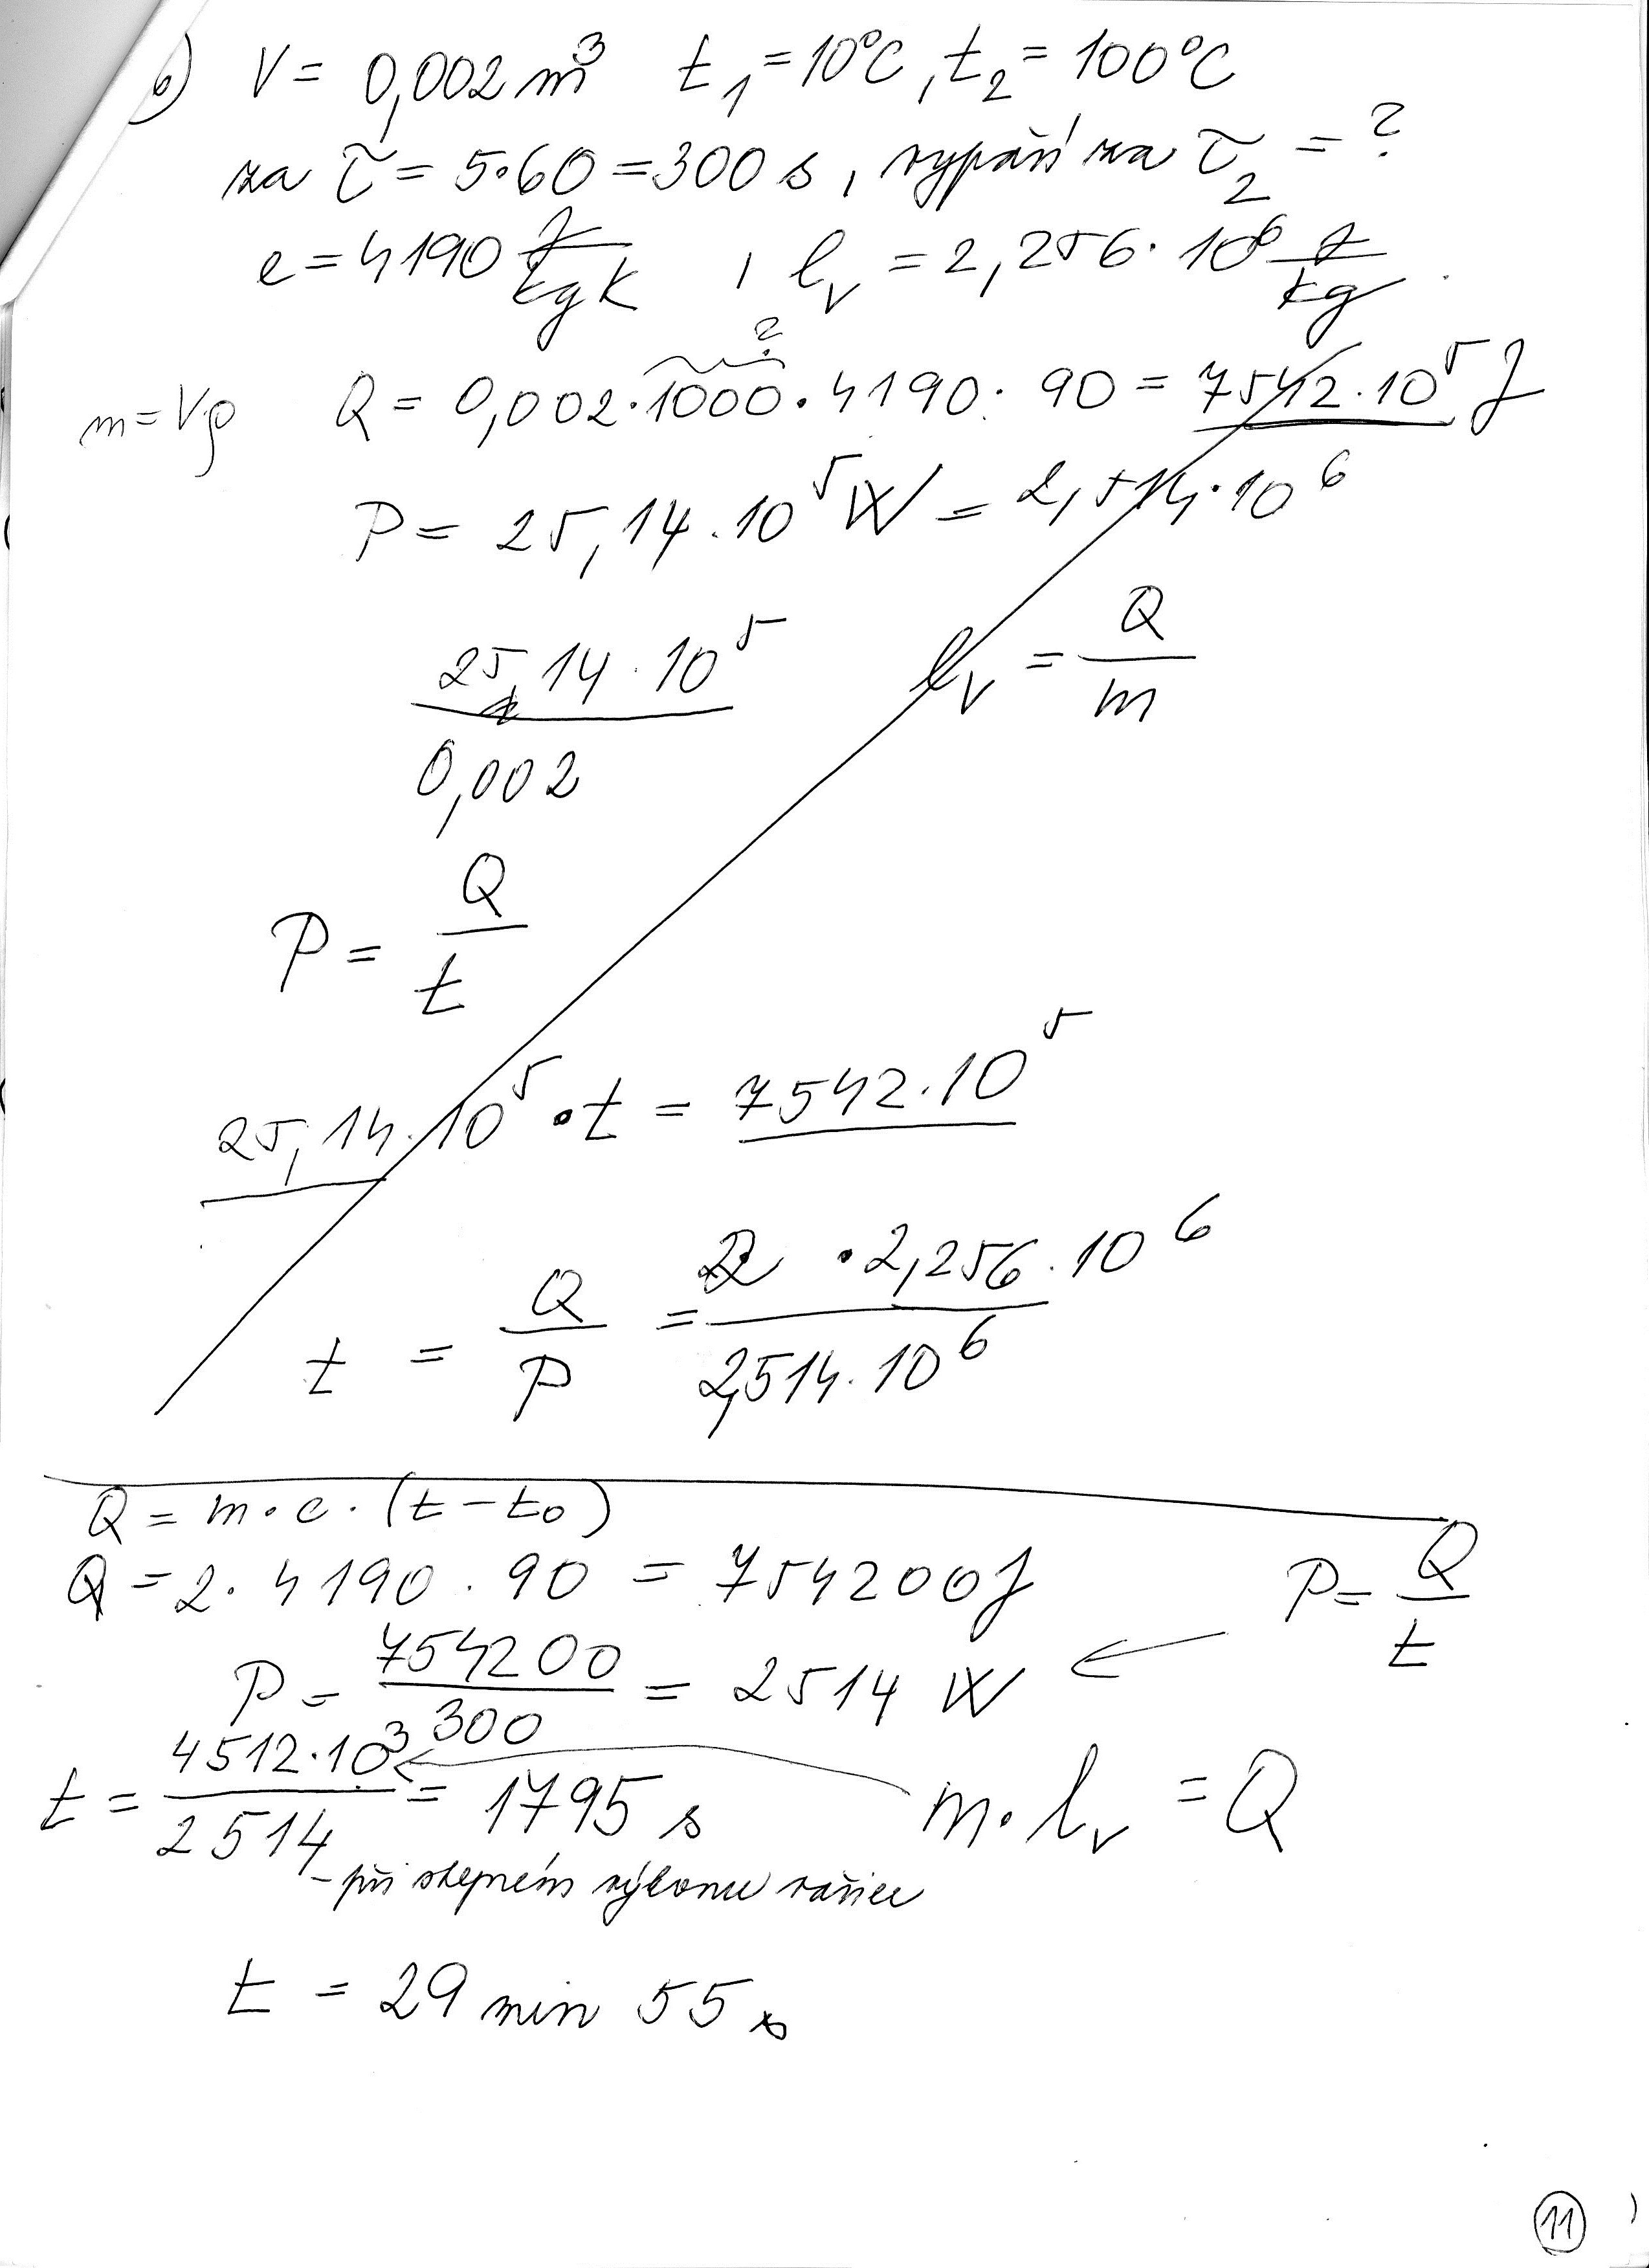 6) V = 0,002 m³ t₁ = 10°C, t₂ = 100°C
za τ = 5·60 = 300 s, vypaří za τ₂ = ?
c = 4190 J/kgK , lᵥ = 2,256·10⁶ J/kg
?
m = Vρ Q = 0,002·1000·4190·90 = 7542·10⁵ J
P = 25,14·10⁵ W = 2,514·10⁶
25,14·10⁵ / 0,002 lᵥ = Q/m
P = Q/t
25,14·10⁵·t = 7542·10⁵
t = Q/P = 2·2,256·10⁶ / 2,514·10⁶
Q = m·c·(t - t₀)
Q = 2·4190·90 = 754200 J P = Q/t
P = 754200/300 = 2514 W ←
t = 4512·10³/2514 = 1795 s m·lᵥ = Q
- při stejném výkonu vařiče
t = 29 min 55 s
11